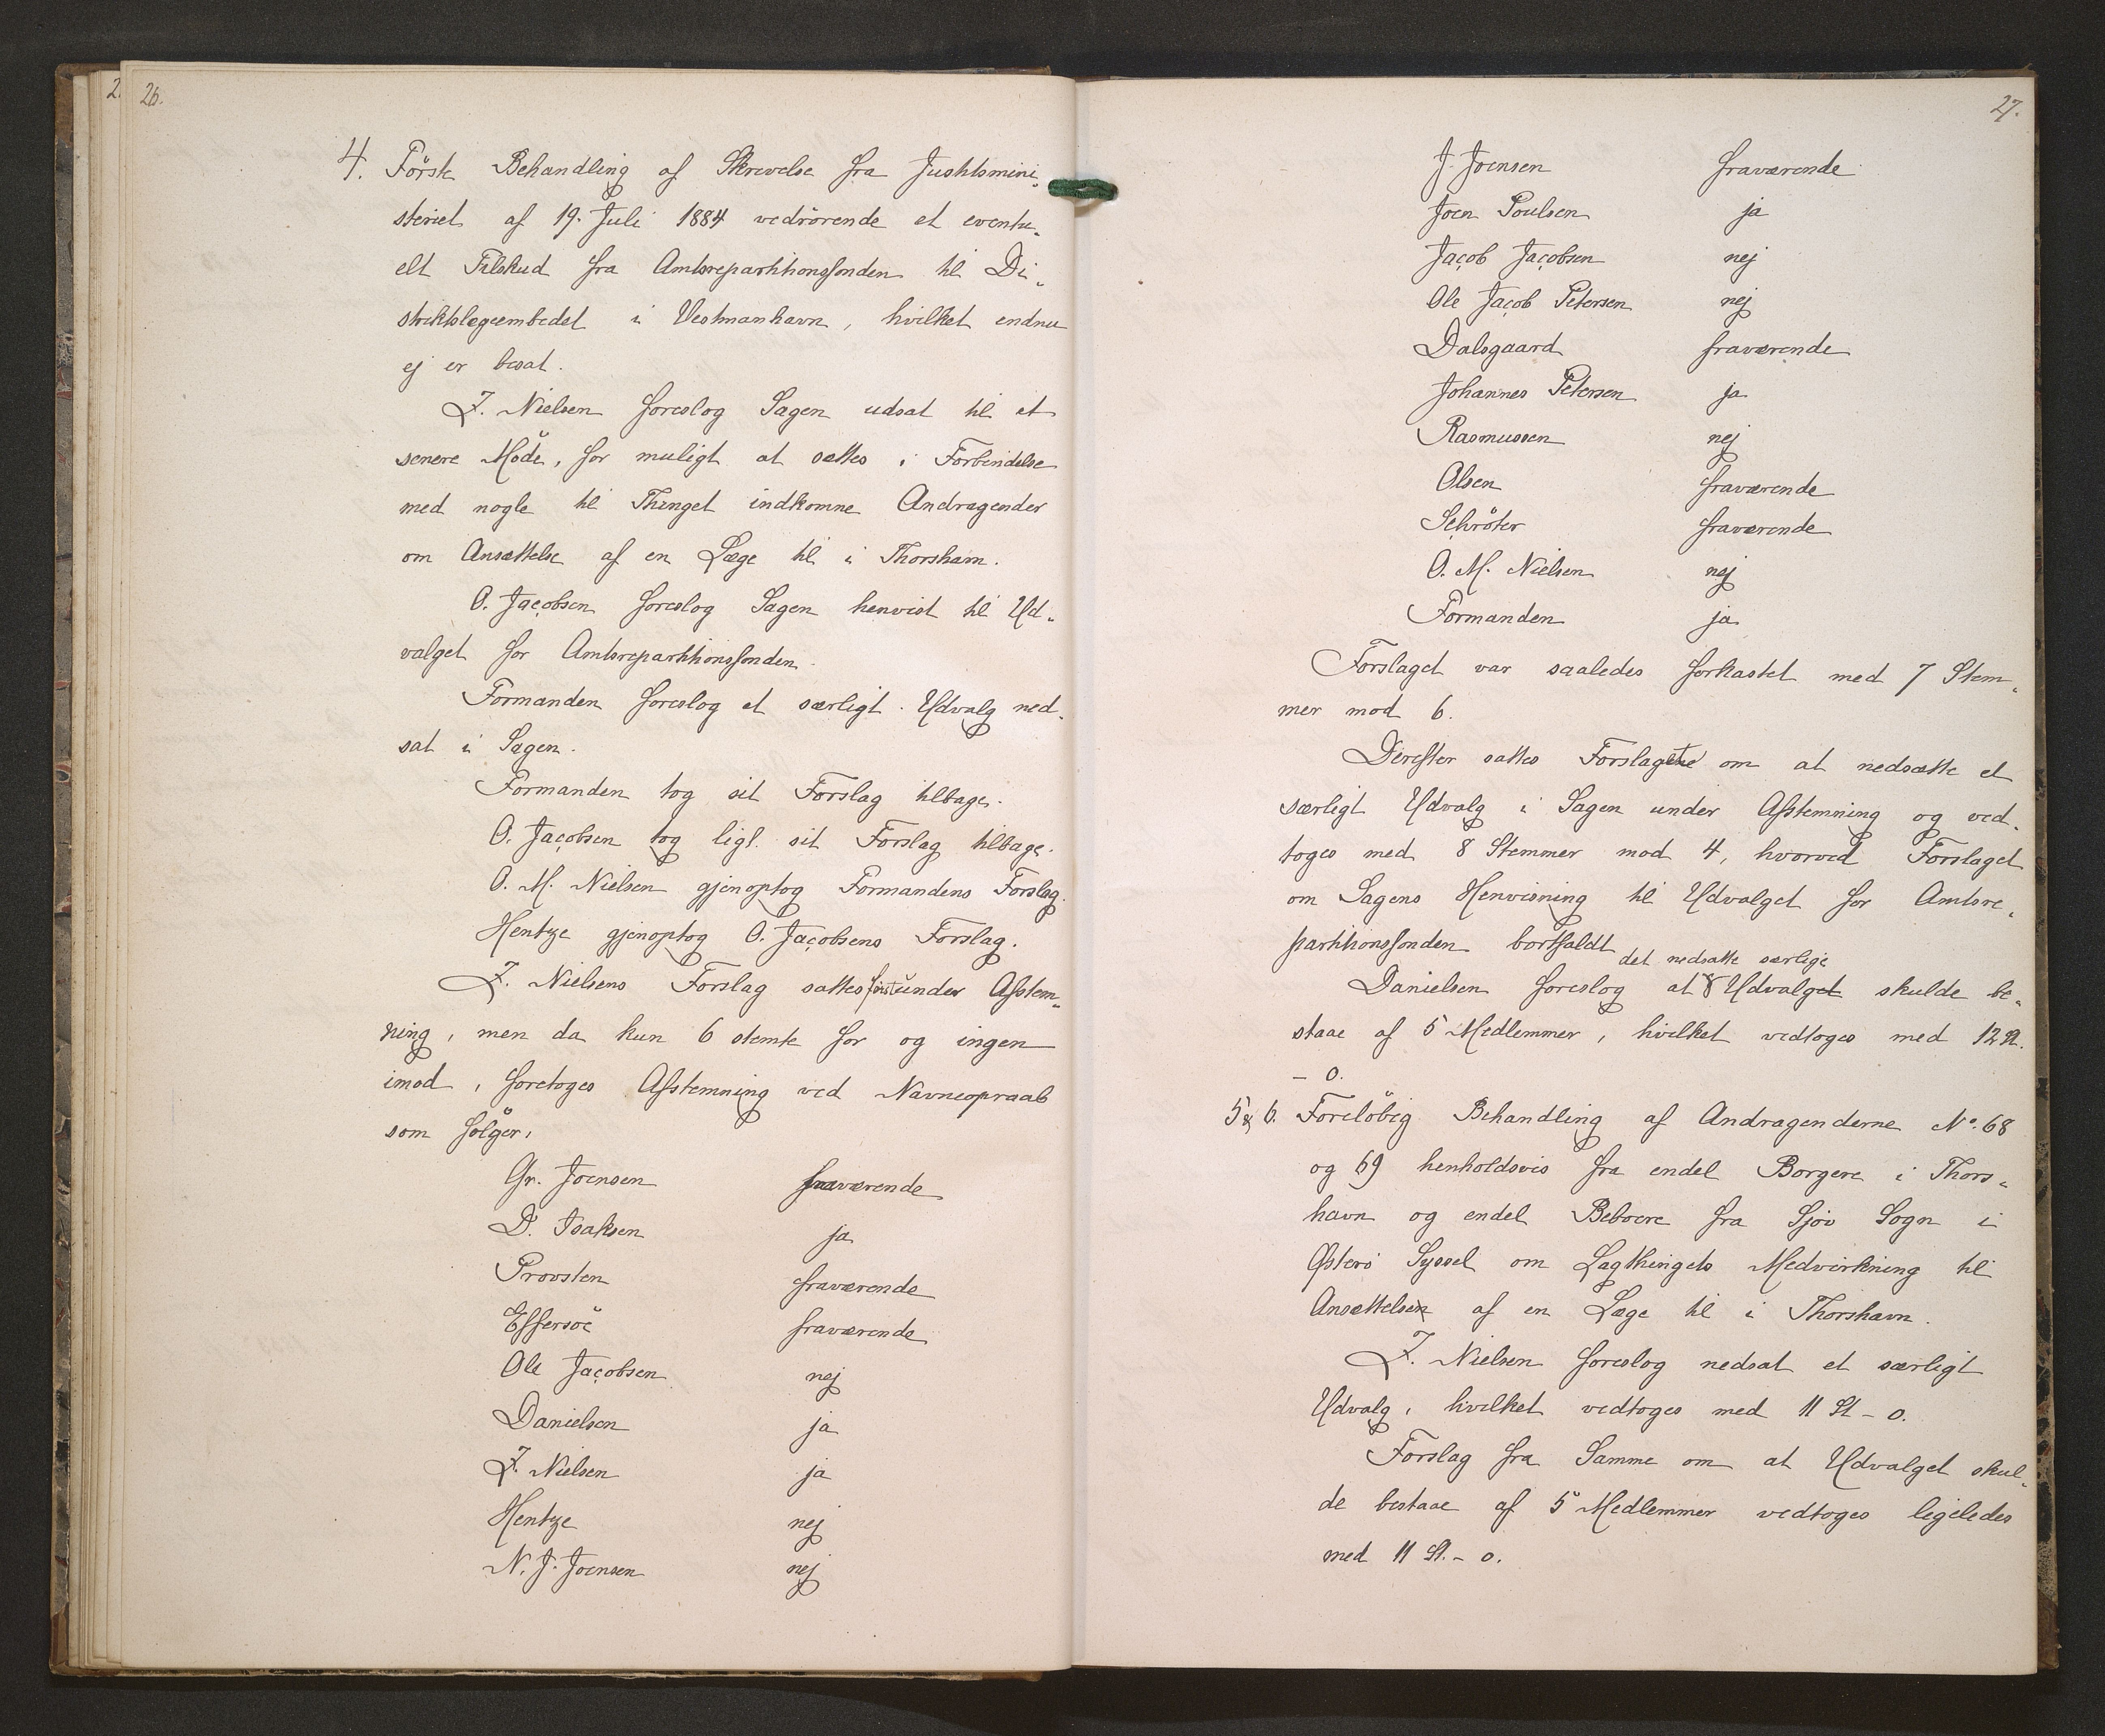 26.
4. Förste Behandling af Skrivelse fra Justitsmini-
steriet af 19. Juli 1884 vedrörende et eventu-
elt Tilskud fra Amtsrepartitionsfonden til Di-
striktslægeembedet i Vestmanhavn, hvilket endnu
ej er besat.
Z. Nielsen foreslog Sagen udsat til et
senere Möde, for muligt at sættes i Forbindelse
med nogle til Thinget indkomne Andragender
om Ansættelse af en Læge til i Thorshavn.
O. Jacobsen foreslog Sagen henvist til Ud-
valget for Amtsrepartitionsfonden.
Formanden foreslog et særligt Udvalg ned-
sat i Sagen.
Formanden tog sit Forslag tilbage.
O. Jacobsen tog ligl. sit Forslag tilbage.
O. M. Nielsen gjenoptog Formandens Forslag.
Hentze gjenoptog O. Jacobsens Forslag.
Z. Nielsens Forslag sattes först under Afstem-
ning, men da kun 6 stemte for og ingen
imod, foretoges Afstemning ved Navneopraab
som fölger,
Gr. Joensen fraværende
D. Isaksen ja
Provsten fraværende
Effersöe fraværende
Ole Jacobsen nej
Danielsen ja
Z. Nielsen ja
Hentze nej
N. J. Joensen nej
27.
J. Joensen fraværende
Joen Poulsen ja
Jacob Jacobsen nej
Ole Jacob Petersen nej
Dalsgaard fraværende
Johannes Petersen ja
Rasmussen nej
Olsen fraværende
Schröter fraværende
O. M. Nielsen nej
Formanden ja
Forslaget var saaledes forkastet med 7 Stem-
mer mod 6.
Derefter sattes Forslaget om at nedsætte et
særligt Udvalg i Sagen under Afstemning og ved-
toges med 8 Stemmer mod 4, hvorved Forslaget
om Sagens Henvisning til Udvalget for Amtsre-
partitionsfonden bortfaldt
det nedsatte særlige
Danielsen foreslog at Udvalget skulde be-
staae af 5 Medlemmer, hvilket vedtoges med 12 St.
- 0.
5 & 6. Forelöbig Behandling af Andragenderne No. 68
og 69 henholdsvis fra endel Borgere i Thors-
havn og endel Beboere fra Sjov Sogn i
Österö Syssel om Lagthingets Medvirkning til
Ansættelsen af en Læge til i Thorshavn.
Z. Nielsen foreslog nedsat et særligt
Udvalg, hvilket vedtoges med 11 St - 0.
Forslag fra Samme om at Udvalget skul-
de bestaae af 5 Medlemmer vedtoges ligeledes
med 11 St. - 0.